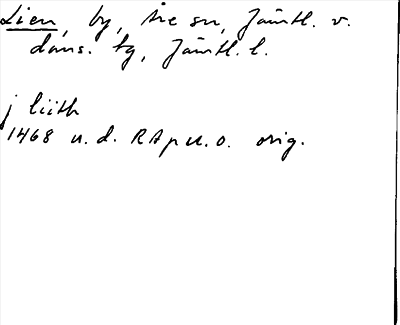 Lien, by, Åre sn, Jämtl. v.
doms. tg, Jämtl. l.
j liith
1468 u.d. RAp u.o. orig.